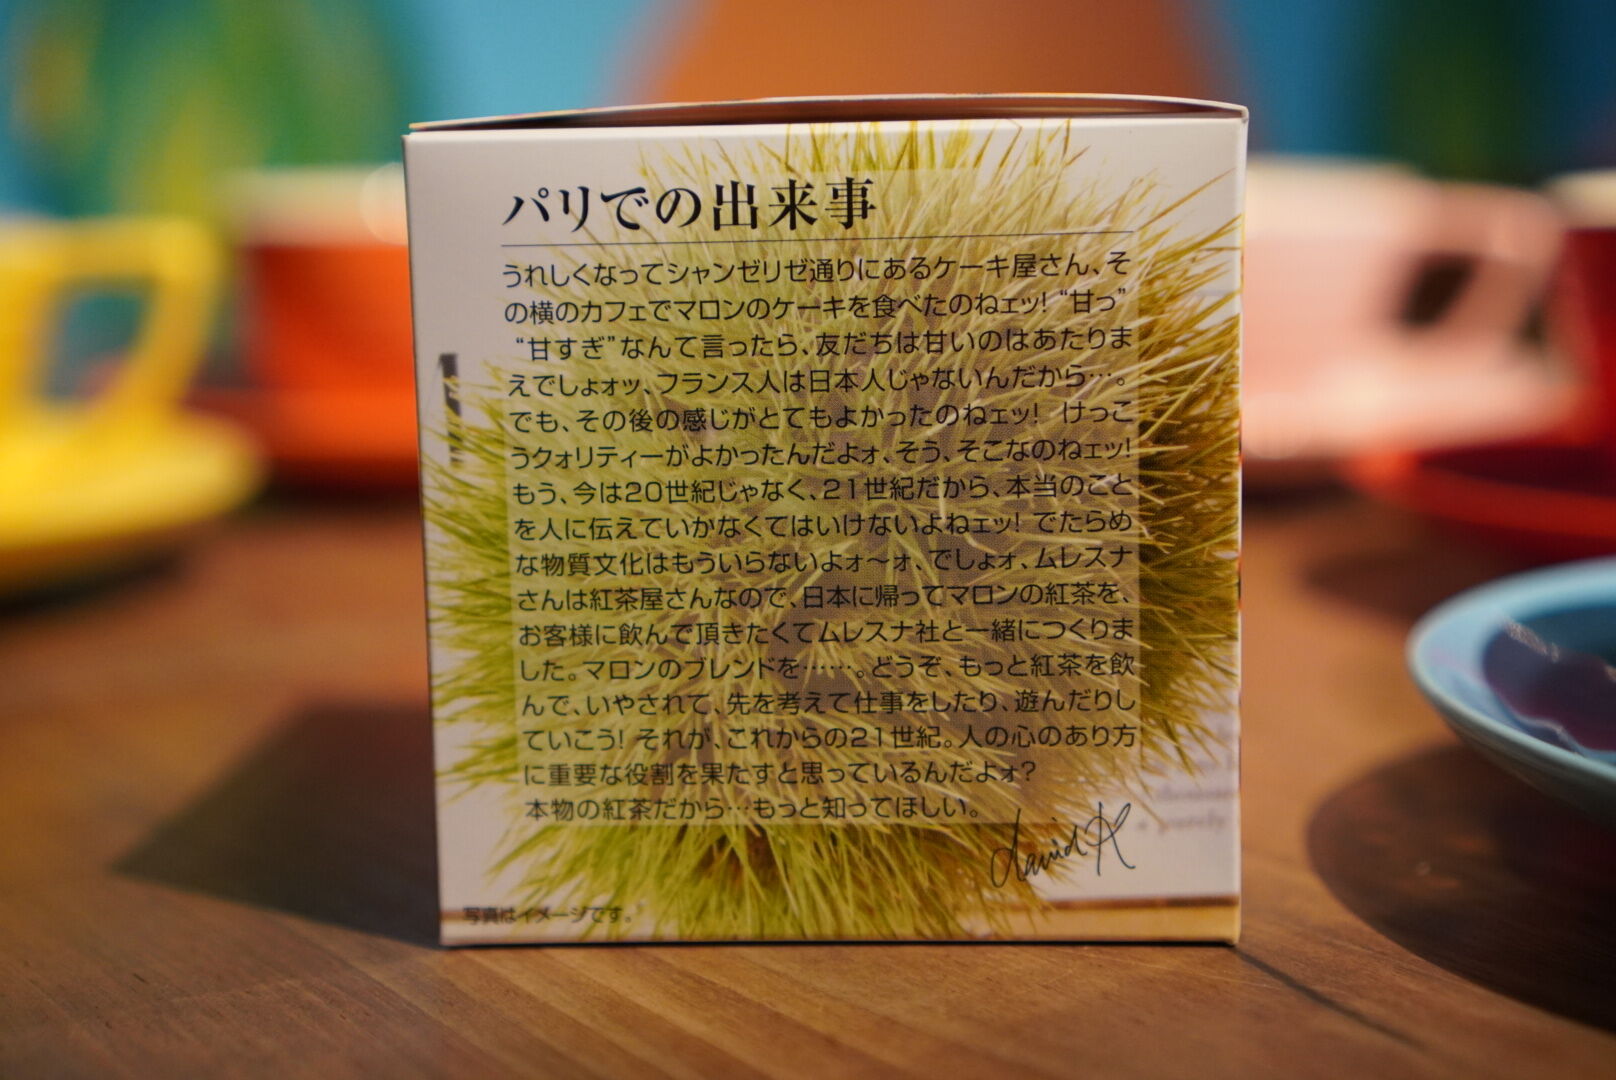 パリでの出来事
うれしくなってシャンゼリゼ通りにあるケーキ屋さん、そ
の横のカフェでマロンのケーキを食べたのねェッ! “甘っ”
“甘すぎ”なんて言ったら、友だちは甘いのはあたりま
えでしょォッ、フランス人は日本人じゃないんだから…。
でも、その後の感じがとてもよかったのねェッ! けっこ
うクォリティーがよかったんだよォ、そう、そこなのねェッ!
もう、今は20世紀じゃなく、21世紀だから、本当のこと
を人に伝えていかなくてはいけないよねェッ! でたらめ
な物質文化はもういらないよォ〜ォ、でしょォ、ムレスナ
さんは紅茶屋さんなので、日本に帰ってマロンの紅茶を、
お客様に飲んで頂きたくてムレスナ社と一緒につくりま
した。マロンのブレンドを……。どうぞ、もっと紅茶を飲
んで、いやされて、先を考えて仕事をしたり、遊んだりし
ていこう! それが、これからの21世紀。人の心のあり方
に重要な役割を果たすと思っているんだよォ?
本物の紅茶だから…もっと知ってほしい。
david K
写真はイメージです。